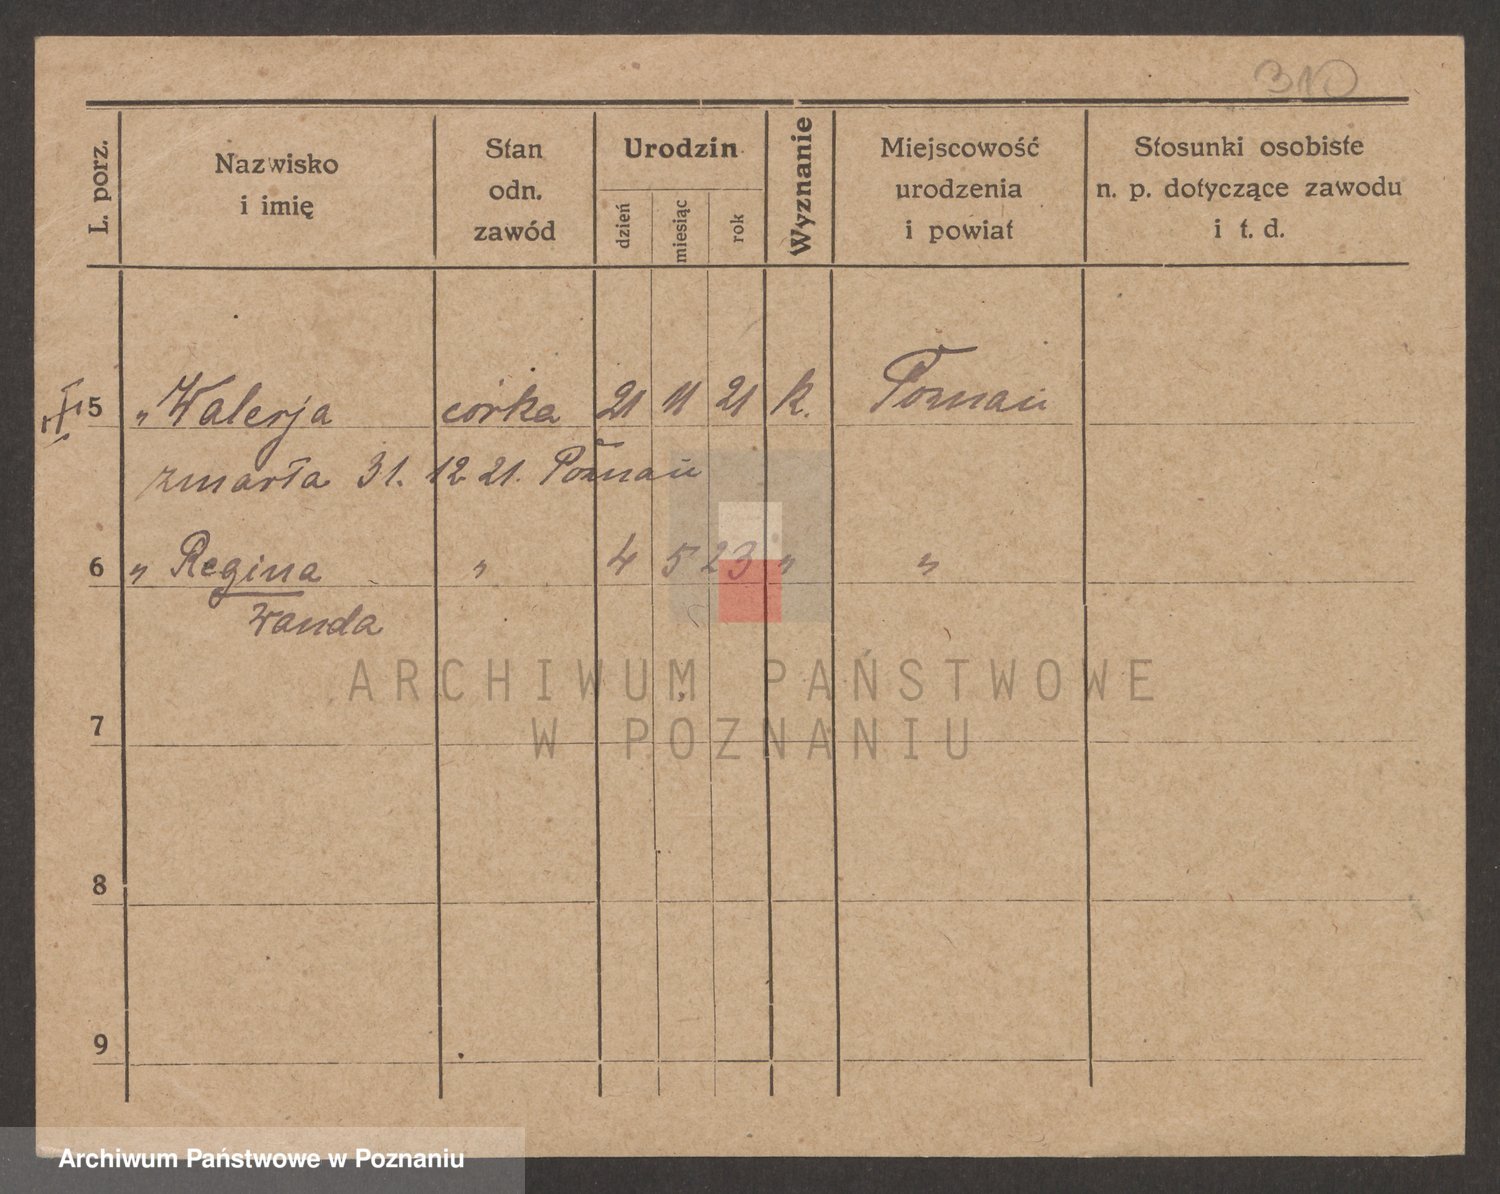 310
L. porz.
Nazwisko
i imię
Stan
odn.
zawód
Urodzin
dzień
miesiąc
rok
Wyznanie
Miejscowość
urodzenia
i powiat
Stosunki osobiste
n. p. dotyczące zawodu
i t. d.
5 " Walerja córka 21 11 21 k. Poznań
zmarła 31. 12 21. Poznań
6 " Regina " 4 5 23 " "
Wanda
7
8
9
ARCHIWUM PAŃSTWOWE
W POZNANIU
Archiwum Państwowe w Poznaniu